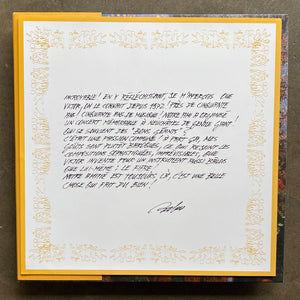 INCROYABLE! EN Y RÉFLÉCHISSANT, JE M'APERÇOIS QUE
VICTOR, ON LE CONNAIT DEPUIS 1972! PRÈS DE CINQUANTE
ANS! CINQUANTE ANS DE MUSIQUE! NOTRE AMI A ORGANISÉ
UN CONCERT MÉMORABLE À NEUCHÂTEL DE GENTLE GIANT!
QUI SE SOUVIENT DES "BONS GÉANTS"?
C'ÉTAIT UNE PASSION COMMUNE! À PART ÇA, MES
GOÛTS SONT PLUTÔT BAROQUES, CE QUI REJOINT LES
COMPOSITIONS SOPHISTIQUÉES, IMPRÉVISIBLES, QUE
VICTOR INVENTE POUR UN INSTRUMENT AUSSI
QUE LUI-MÊME: LE FIFRE.
NOTRE AMITIÉ EST TOUJOURS LÀ, C'EST UNE BELLE
CHOSE QUI FAIT DU BIEN!